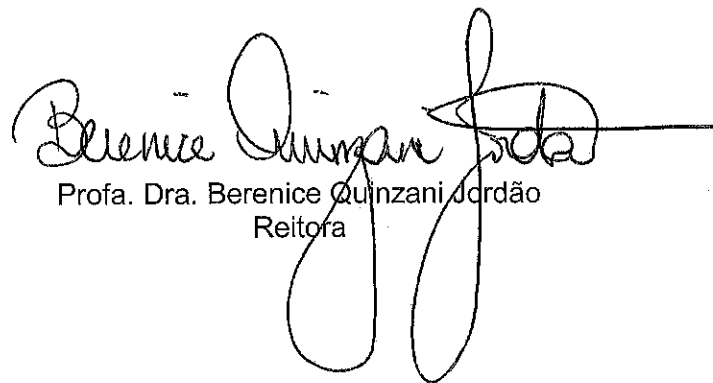 Berenice Quinzani Jordão
Profa. Dra. Berenice Quinzani Jordão
Reitora